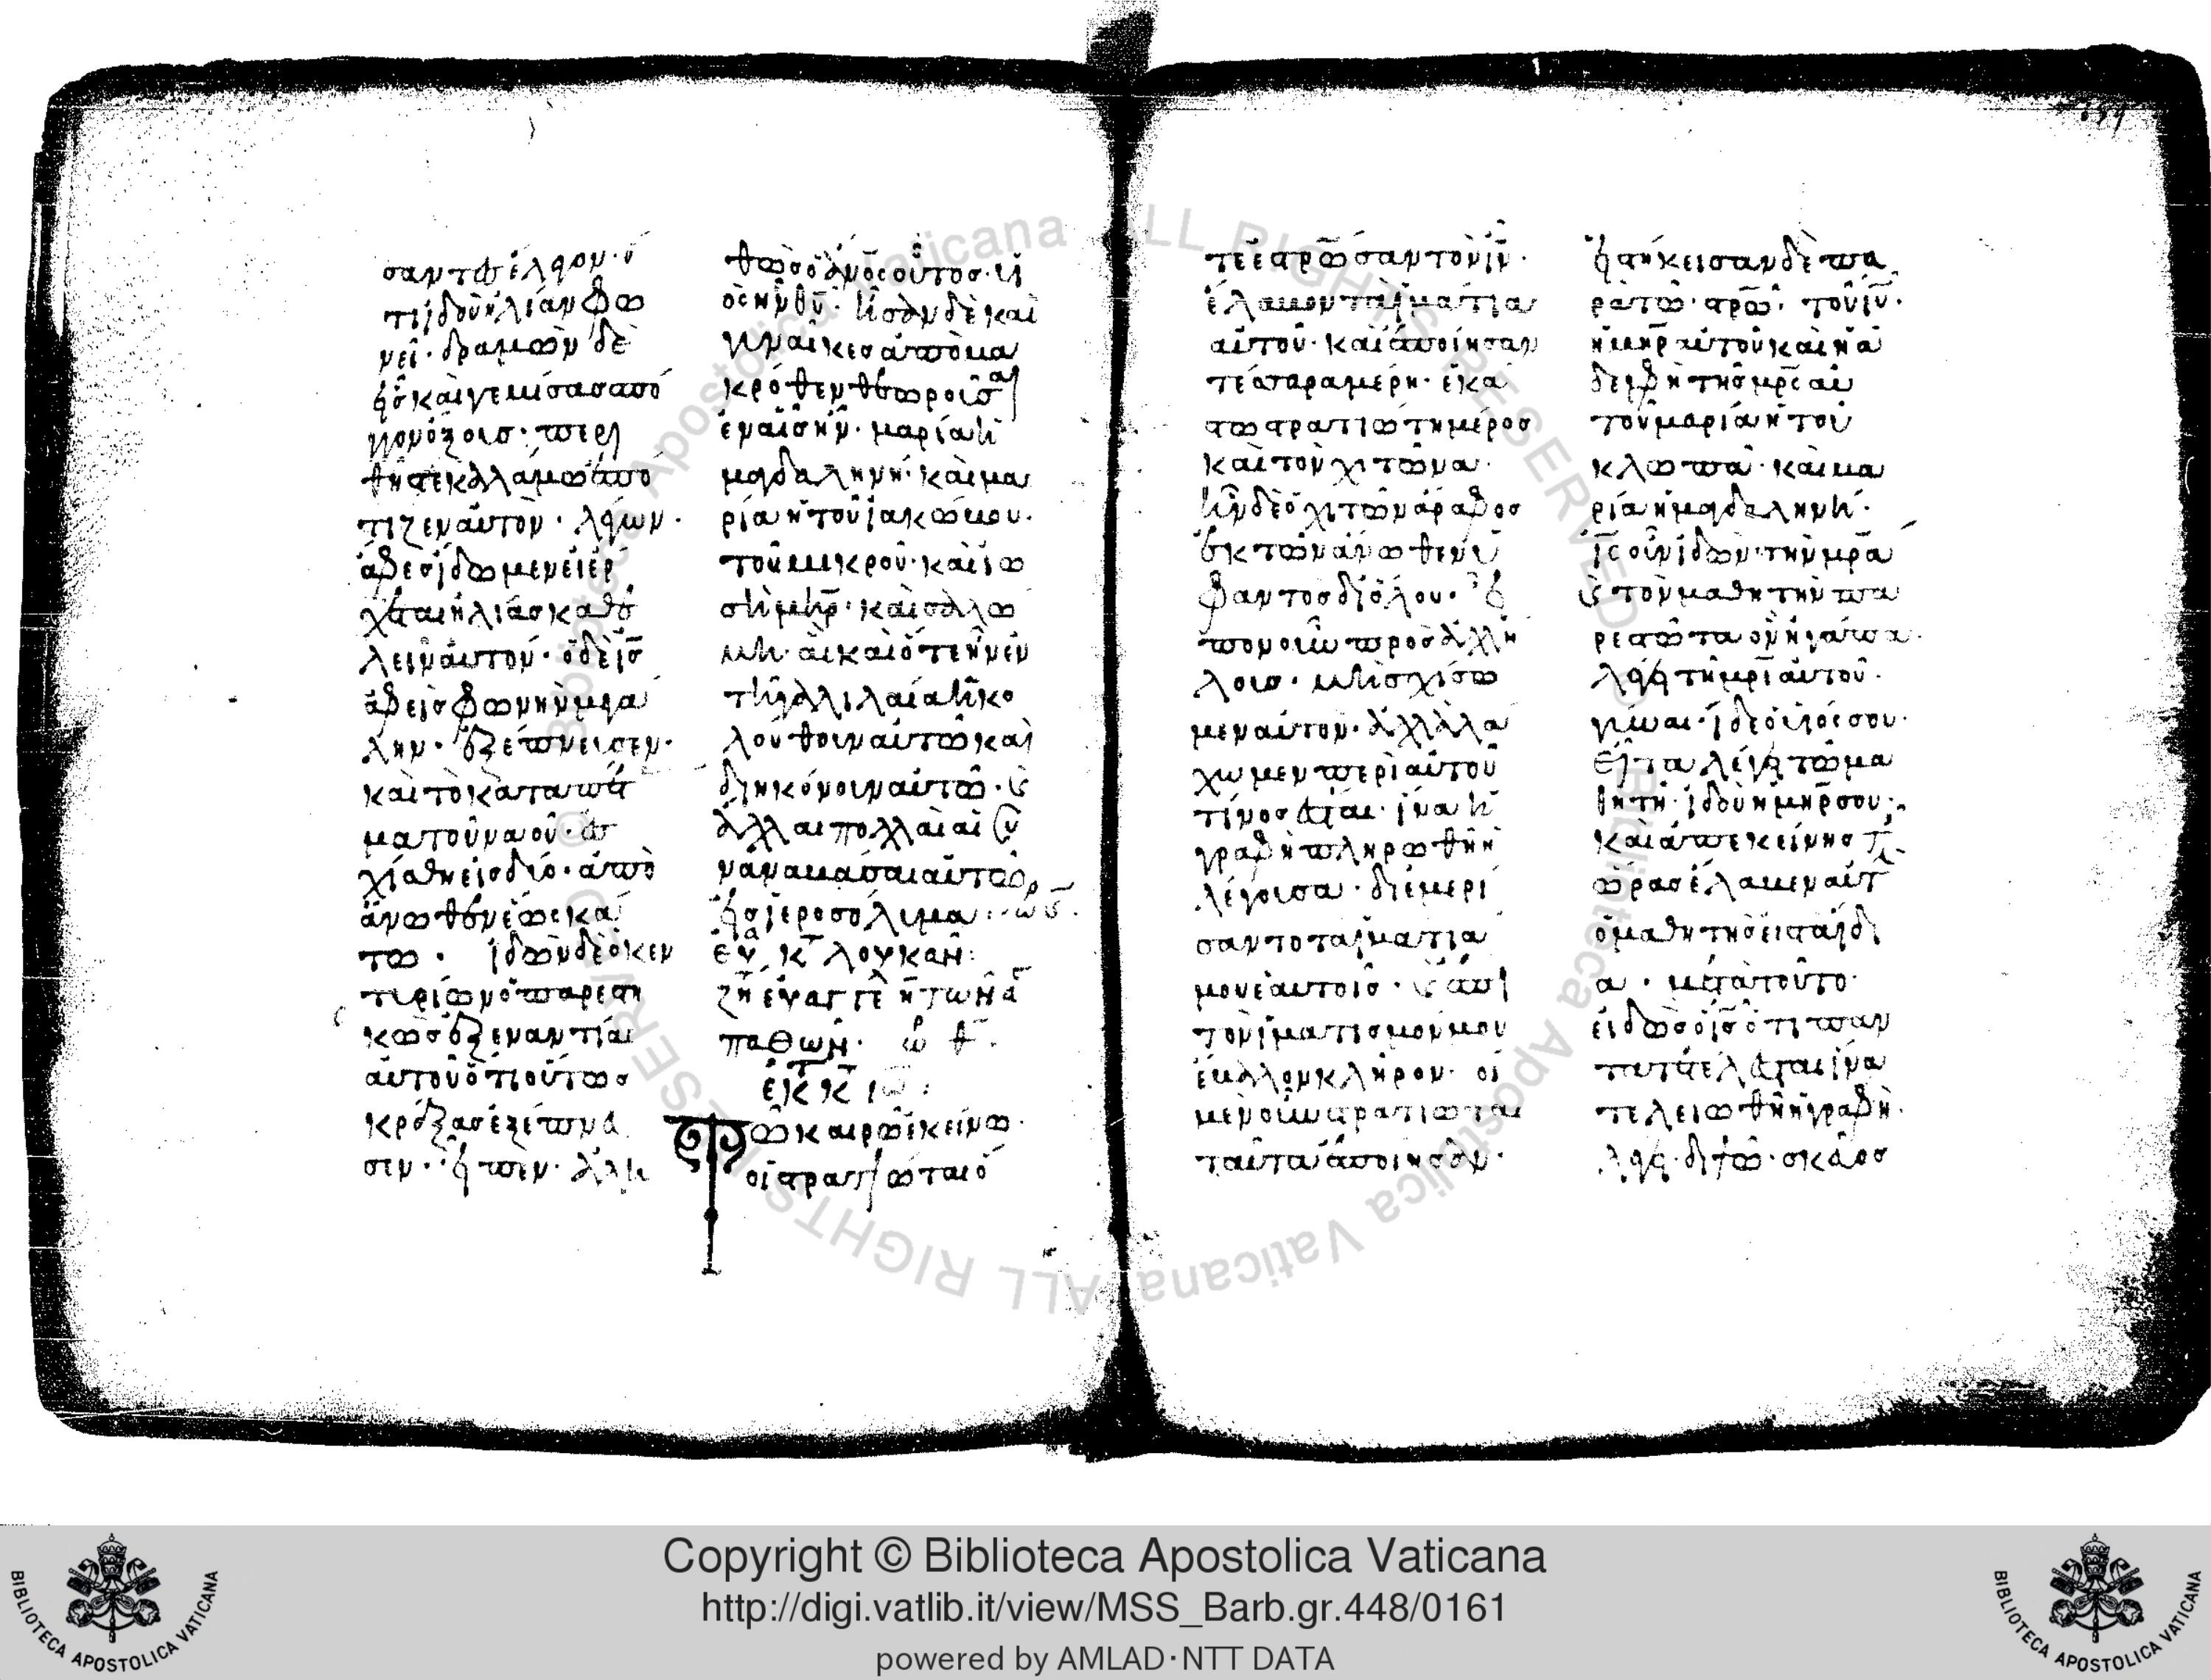 σαντες έλεγον· ὅ
τι ἰδοὺ ἠλίαν φω
νεῖ· δραμὼν δὲ
εἷς καὶ γεμίσας σπό
γγον ὄξους· περι
θεὶς καλάμω ἐπό
τιζεν αὐτὸν· λέγων·
ἄφες ἴδωμεν εἰ ἔρ
χεται ἠλίας καθε
λεῖν αὐτόν· ὁ δὲ ἰς
ἀφεὶς φωνὴν μεγά
λην· ἐξέπνευσεν·
καὶ τὸ καταπέτα
μα τοῦ ναοῦ· ἐσ
χίσθη εἰς δύο· ἀπὸ
ἄνωθεν ἕως κά
τω· ἰδὼν δὲ ὁ κεν
τυρίων ὁ παρεστη
κὼς ἐξεναντίας
αὐτοῦ ὅτι οὕτως
κράξας ἐξέπνευ
σεν· εἶπεν· ἀλη
θῶς ὁ ἀνος οὗτος· υἱ
ὸς ἦν θυ· ἦσαν δὲ καὶ
γυναῖκες ἀπὸ μα
κρόθεν θεωροῦσαι
ἐν αἷς ἦν· μαρία ἡ
μαγδαληνή· καὶ μα
ρία ἡ τοῦ ἰακώβου·
τοῦ μικροῦ· καὶ ἰω
σὴ μηρ· καὶ σαλώ
μη· αἳ καὶ ὅτε ἦν ἐν
τῆ γαλιλαία ἠκο
λούθουν αὐτῶ καὶ
διηκόνουν αὐτῶ· καὶ
ἄλλαι πολλαὶ αἱ συ
ναναβᾶσαι αὐτῶ
εἰς ἱεροσόλυμα·
ευα κτ λουκαν:
ζη ευαγγε η των α
παθων·
εκ κτ ιω:
Τῶ καιρῶ ἐκείνω·
οἱ στρατιῶται ὅ
τε ἐστρωσαν τὸν ιν·
ἔλαβον τὰ ἱμάτια
αὐτοῦ· καὶ ἐποίησαν
τέσσαρα μέρη· ἑκά
στω στρατιώτη μέρος
καὶ τὸν χιτῶνα·
ἦν δὲ ὁ χιτὼν ἄραφος
ἐκ τῶν ἄνωθεν ὑ
φαντὸς δι ὅλου· εἶ
πον οὖν πρὸς ἀλλή
λους· μὴ σχίσω
μεν αὐτόν· ἀλλὰ λά
χωμεν περὶ αὐτοῦ
τίνος ἔσται· ἵνα ἡ
γραφὴ πληρωθῆ ἡ
λέγουσα· διεμερί
σαντο τὰ ἱμάτιά
μου ἑαυτοῖς· καὶ ἐπὶ
τὸν ἱματισμόν μου
ἔβαλον κλῆρον· οἱ
μὲν οὖν στρατιῶται
ταῦτα ἐποίησαν·
εἱστήκεισαν δὲ πα
ρὰ τῶ στρω τοῦ ιυ·
ἡ μηρ αὐτοῦ καὶ ἡ ἀ
δελφὴ τῆς μρς αὐ
τοῦ μαρία ἡ τοῦ
κλωπᾶ· καὶ μα
ρία ἡ μαγδαληνή·
ις οὖν ἰδὼν τὴν μρα
καὶ τὸν μαθητὴν πα
ρεστῶτα ὃν ἠγάπα·
λέγει τῆ μρι αὐτοῦ·
γύναι· ἴδε ὁ υἱός σου·
εἶτα λέγει τῶ μα
θητῆ· ἰδοὺ ἡ μηρ σου·
καὶ ἀπ ἐκείνης τῆς
ὥρας ἔλαβεν αὐτ
ὁ μαθητὴς εἰς τὰ ἴδι
α· μετὰ τοῦτο
εἰδὼς ὁ ις ὅτι πάν
τα τετέλεσται ἵνα
τελειωθῆ ἡ γραφή·
λέγει· διψῶ· σκεῦος
Copyright © Biblioteca Apostolica Vaticana
http://digi.vatlib.it/view/MSS_Barb.gr.448/0161
powered by AMLAD·NTT DATA
BIBLIOTECA APOSTOLICA VATICANA
BIBLIOTECA APOSTOLICA VATICANA